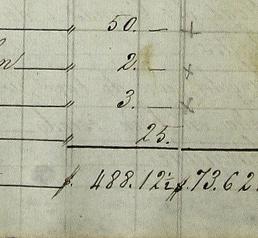 " 50. — +
" 2. — x
" 3. — x
" 25.
$. 488.12½ $.73.62